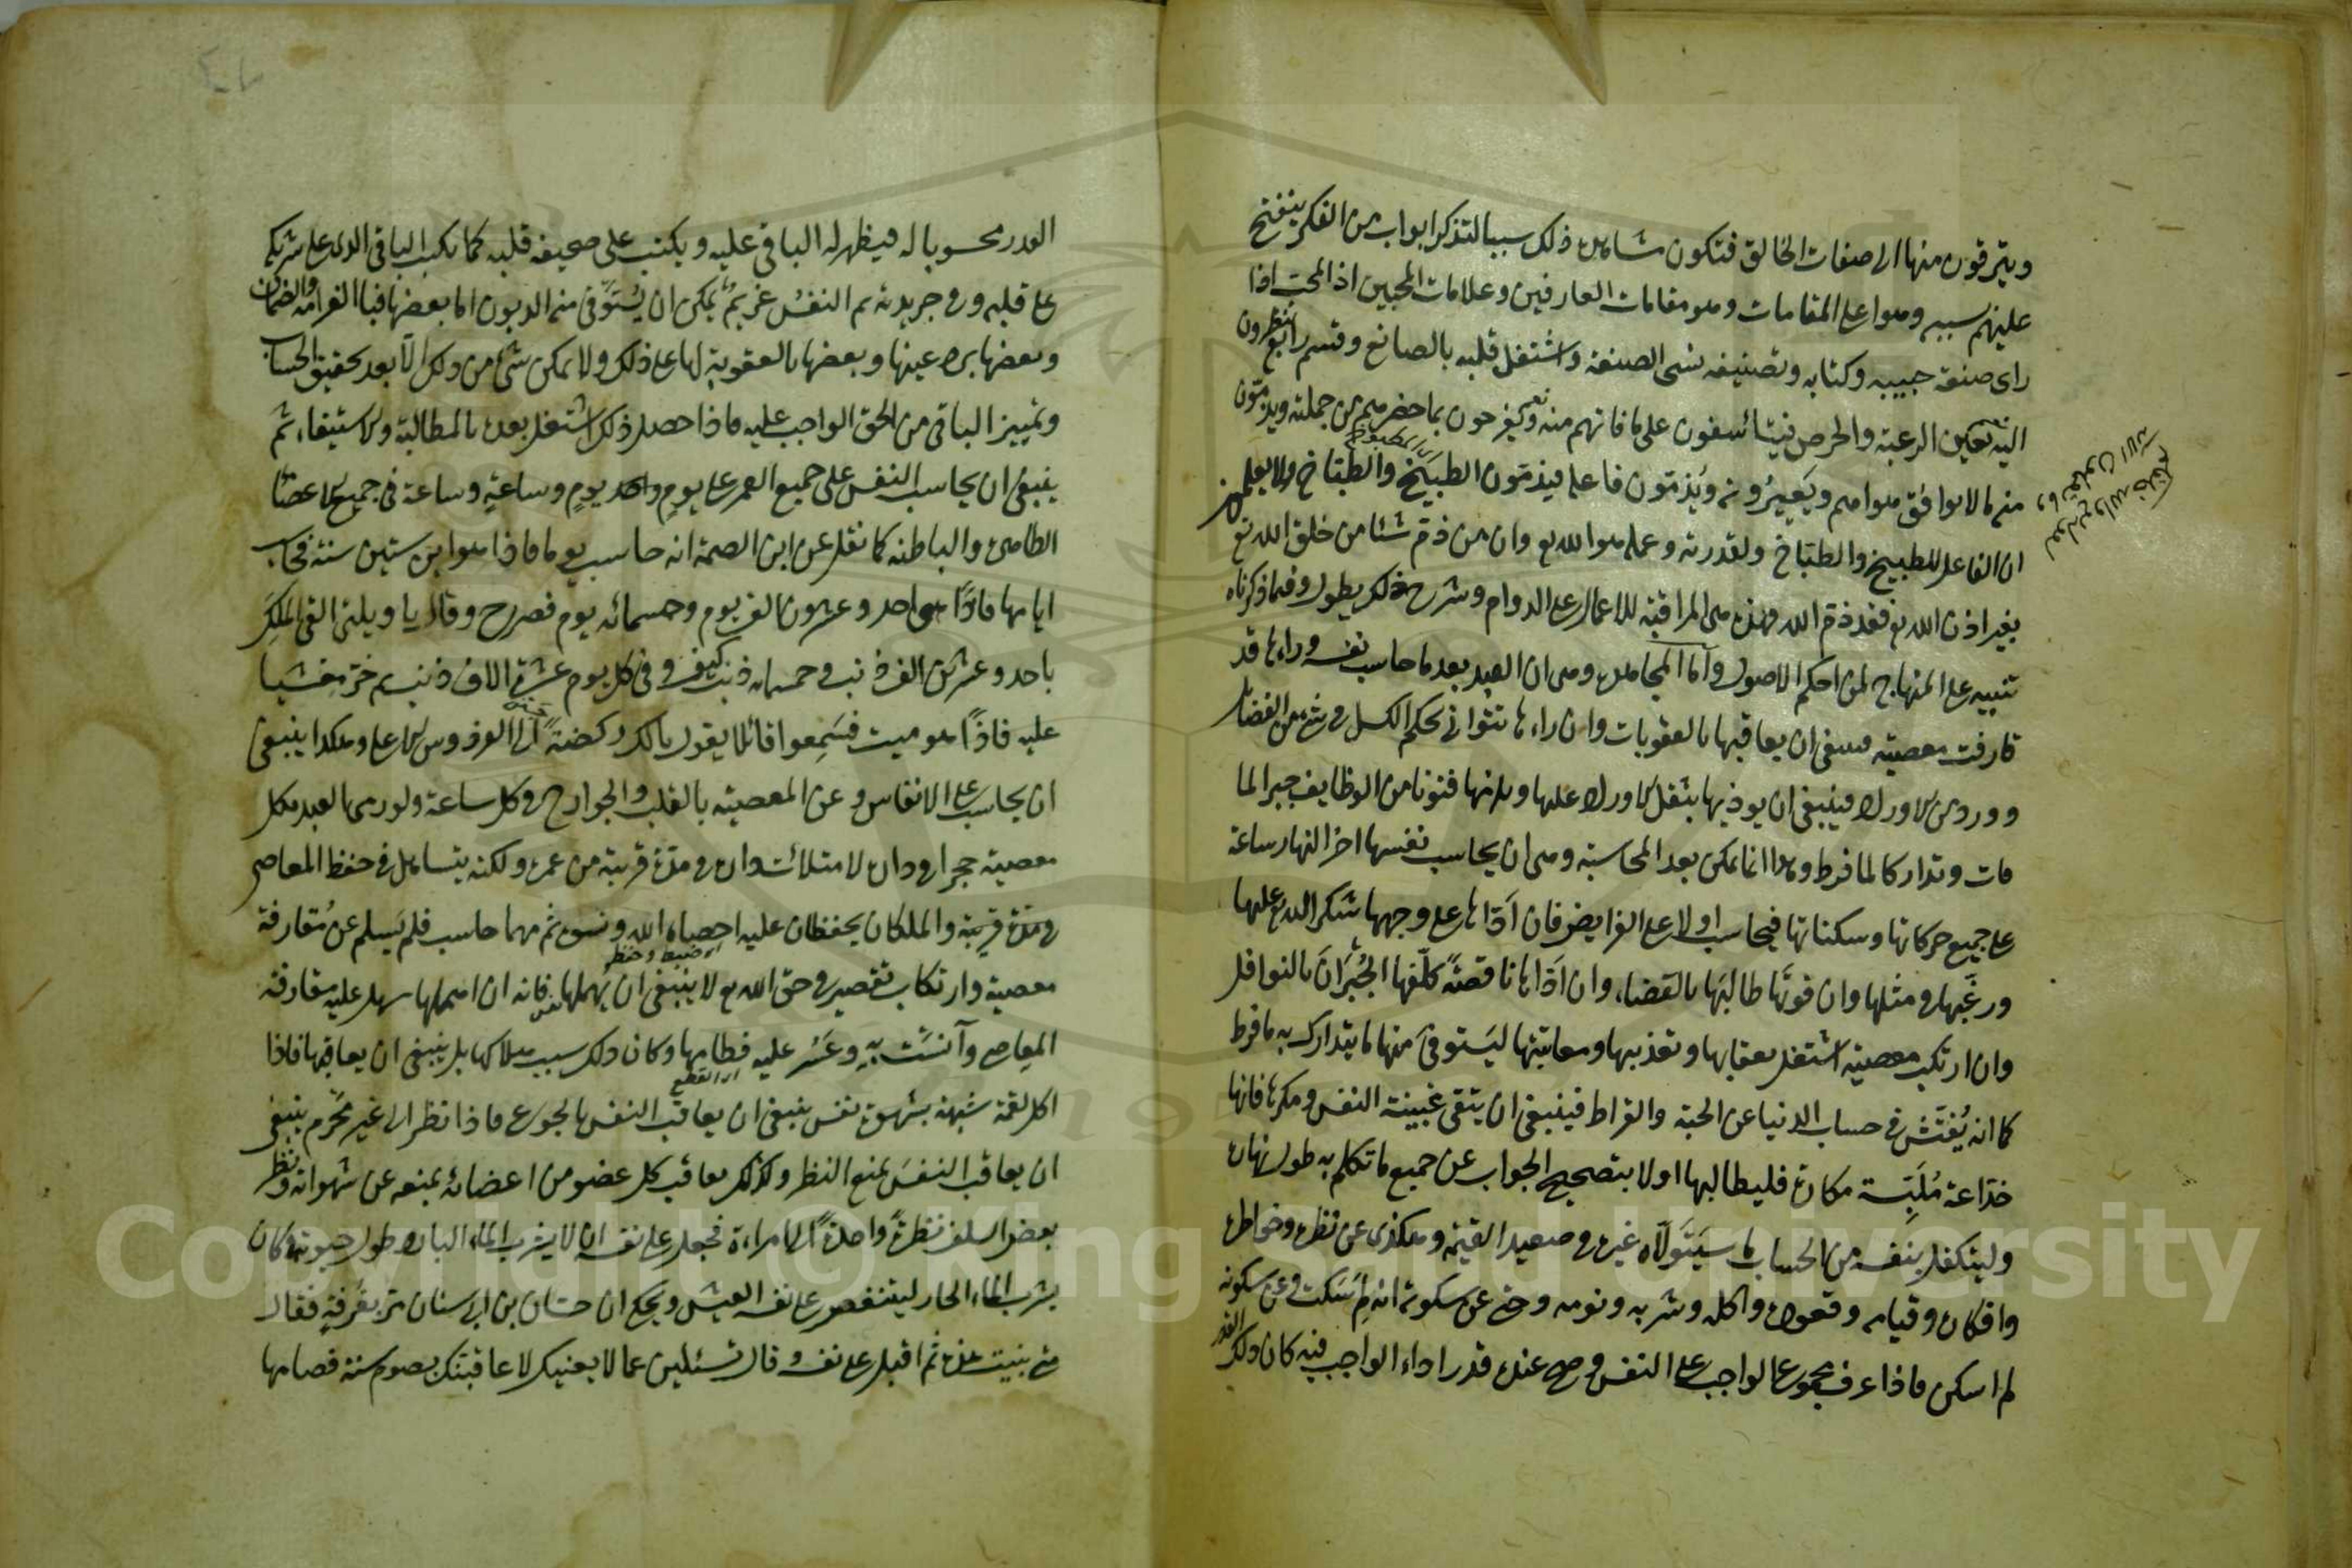 ويترقون منها الى صفات الخالق فتكون مشاهدة ذلك سببا لتذكر ابواب من الفكر ينفتح
عليهم بسببه وهو اعلى المقامات وهو مقامات العارفين وعلامات المحبين اذ المحب اذا
راى صنعة حبيبه وكتابه وتصنيفه نسى الصنعة واشتغل قلبه بالصانع وقسم رابع ينظرون
اليه بعين الرغبة والحرص فيتاسفون على ما فاتهم منه ويفرحون بما حضرهم من جملته ويذمون
منه ما لا يوافق هواهم ويعيبونه ويذمون فاعله فيذمون الطبيخ والطباخ ولا يعلمون
ان الفاعل للطبيخ والطباخ ولقدرته وعمله هو الله تع وان من ذم شيئا من خلق الله تع
بغير اذن الله تع فقد ذم الله فهذه هى المراقبة للاعمال على الدوام وشرح ذلك يطول وفيما ذكرناه
تنبيه على المنهاج لمن احكم الاصول واما المجاهدة وهى ان العبد بعد ما حاسب نفسه وراءها قد
قارفت معصية فينبغى ان يعاقبها بالعقوبات وان راءها تتوانى بحكم الكسل فى شئ من الفضائل
وورد من الاوراد فينبغى ان يوذيها بثقل الاوراد عليها ويلزمها فنونا من الوظايف جبرا لما
فات وتداركا لما فرط وهذا انما يمكن بعد المحاسبة وهى ان يحاسب نفسها اخر النهار ساعة
على جميع حركاتها وسكناتها فيحاسب اولا على الفرايض فان ادّاها على وجهها شكر الله تع عليها
ورغّبها فى مثلها وان فوتها طالبها بالقضاء وان ادّاها ناقصة كلّفها الجبران بالنوافل
وان ارتكب معصية اشتغل بعقابها وتعذيبها ومعاتبتها ليستوفى منها ما يتدارك به ما فرط
كما انه يفتش فى حساب الدنيا عن الحبة والقراط فينبغى ان يتقى غبينة النفس ومكرها فانها
خدّاعة ملبّسة مكارة فليطالبها اولا بتصحيح الجواب عن جميع ما تكلم به طول نهاره
وليتكفل بنفسه من الحساب ما سيتولاه غيره فى صعيد القيمة وهكذى عن نظره وخواطره
وافكاره وقيامه وقعوده واكله وشربه ونومه وحتى عن سكوته انه لم سكت وعن سكونه
لم اسكن فاذا عرف مجموع الواجب على النفس وصح عنده قدر اداء الواجب فيه كان ذلك القدر
القدر محسوبا له فيظهر له الباقى عليه ويكتب على صحيفة قلبه كما يكتب الباقى الذى على شريكه
على قلبه وفى جريدته ثم النفس غريم يمكن ان يستوفى منه الديون اما بعضها فبا الغرامة والضمان
وبعضها برد عينها وبعضها بالعقوبة لها على ذلك ولا يمكن شئ من ذلك الا بعد تحقيق الحساب
وتمييز الباقى من الحق الواجب عليه فاذا حصل ذلك اشتغل بعده بالمطالبة والاستيفاء ثم
ينبغى ان يحاسب النفس على جميع العمر على يوم يوم وساعة وساعة فى جميع الاعضاء
الظاهرة والباطنة كما نقل عن ابن الصمة انه حاسب يوما فاذا هو ابن ستين سنة فحاسب
ايامها فاذا هى احد وعشرون الف يوم وخمسمائه يوم فصرخ وقال يا ويلتى القى الملك
باحد وعشرين الف ذنب وخمسمائه ذنب كيف وفى كل يوم عشرة الاف ذنب ثم خر مغشيا
عليه فاذا هو ميت فسمعوا قائلا يقول يا لك ركضة الى الفردوس الاعلى وهكذا ينبغى
ان يحاسب على الانفاس وعن المعصية بالقلب والجوارح فى كل ساعة ولو رمى العبد بكل
معصية حجرا فى داره لامتلات داره فى مدة قريبة من عمره ولكنه يتساهل فى حفظ المعاصى
فى مدة قريبة والملكان يحفظان عليه احصاه الله ونسوه ثم مهما حاسب فلم يسلم عن مقارفة
اى ضبط وحفظ
معصية وارتكاب تقصير فى حق الله تع لا ينبغى ان يهملها فانه ان اهملها سهل عليه مقارفة
المعاصى وآنست به وعسر عليه فطامها وكان ذلك سبب هلاكها بل ينبغى ان يعاقبها فاذا
اى القطع
اكل لقمة شبهة بشهوة نفس ينبغى ان يعاقب النفس بالجوع فاذا نظر الى غير محرم ينبغى
ان يعاقب النفس بمنع النظر وكذلك يعاقب كل عضو من اعضائه بمنعه عن شهواته ونظر
بعض السلف نظرة واحدة الى امراءة فجعل على نفسه ان لا يشرب الماء البارد طول حيوته فكان
يشرب الماء الحار لينغص على نفسه العيش ويحكى ان حسّان بن ابى سنان مر بغرفة فقال
متى بنيت هذه ثم اقبل على نفسه وقال تسئلين عما لا يعنيك لا عاقبتك بصوم سنة فصامها